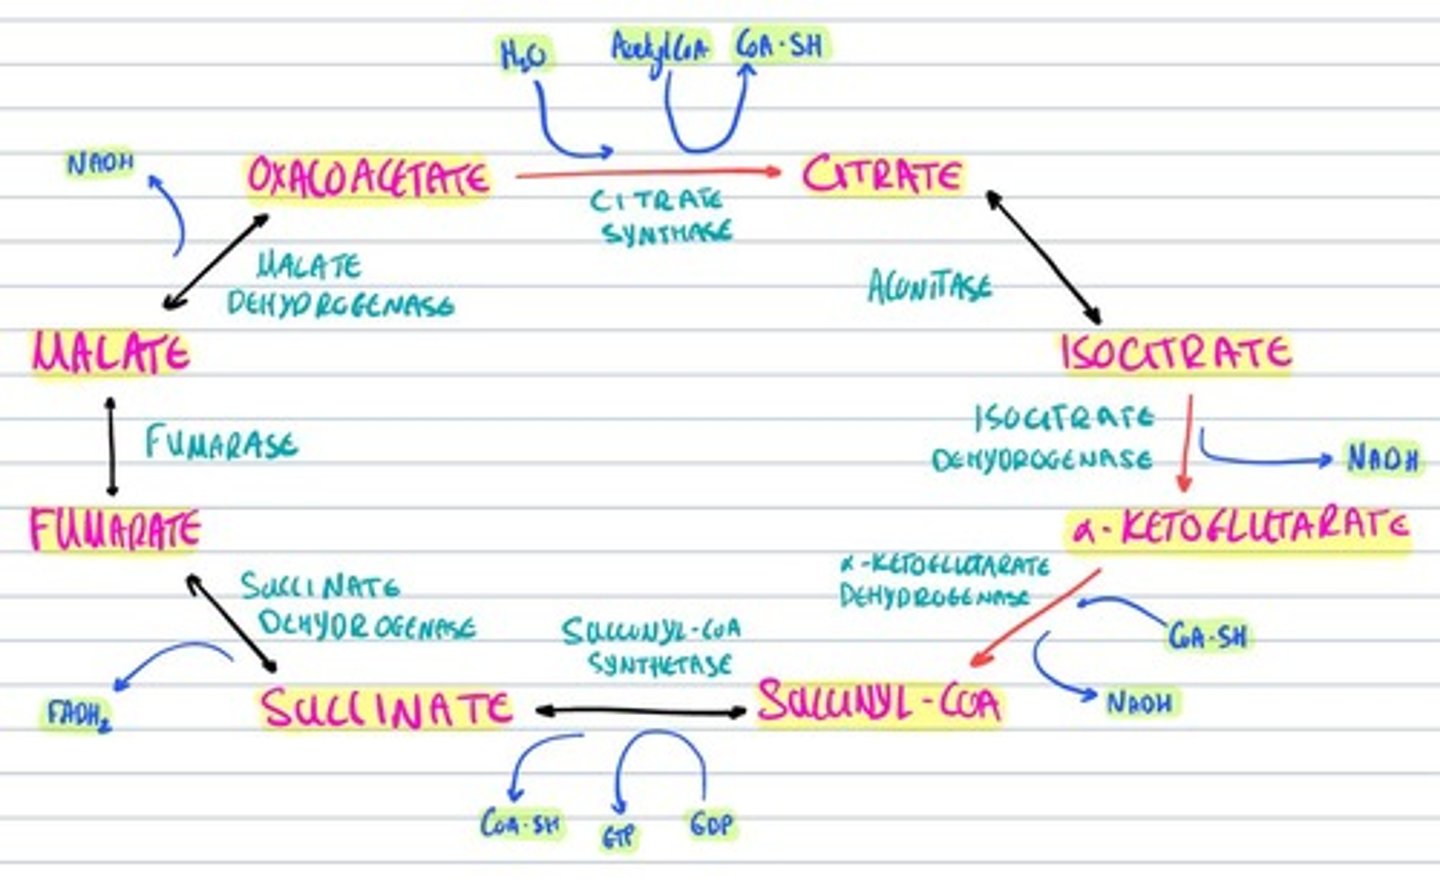 H₂O
Acetyl CoA
CoA-SH
NADH
OXALOACETATE
CITRATE
CITRATE
SYNTHASE
MALATE
DEHYDROGENASE
ACONITASE
MALATE
ISOCITRATE
ISOCITRATE
DEHYDROGENASE
NADH
FUMARASE
FUMARATE
α-KETOGLUTARATE
α-KETOGLUTARATE
DEHYDROGENASE
SUCCINATE
DEHYDROGENASE
SUCCINYL-COA
SYNTHETASE
CoA-SH
FADH₂
SUCCINATE
SUCCINYL-COA
NADH
CoA-SH
GTP
GDP